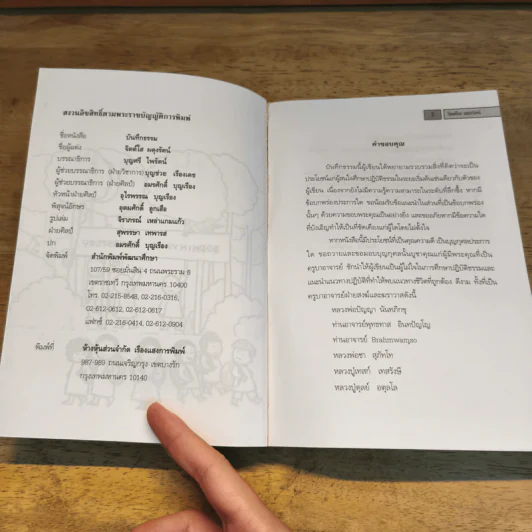 สงวนลิขสิทธิ์ตามพระราชบัญญัติการพิมพ์
ชื่อหนังสือ บันทึกธรรม
ชื่อผู้แต่ง จิตต์ใส ผดุงรัตน์
บรรณาธิการ บุญศรี ไพรัตน์
ผู้ช่วยบรรณาธิการ (ฝ่ายวิชาการ) บุญช่วย เรืองเดช
ผู้ช่วยบรรณาธิการ (ฝ่ายศิลป์) อมรศักดิ์ บุญเรือง
หัวหน้าฝ่ายศิลป์ อุไรพรรณ บุญเรือง
พิสูจน์อักษร อุดมศักดิ์ ลูกเสือ
รูปเล่ม จิราภรณ์ เหล่าแกมแก้ว
ฝ่ายศิลป์ สุพรรษา เทพารส
ปก อมรศักดิ์ บุญเรือง
จัดพิมพ์ สำนักพิมพ์พัฒนาศึกษา
107/59 ซอยมั่นสิน 4 ถนนพระราม 6
เขตราชเทวี กรุงเทพมหานคร 10400
โทร. 02-215-8548, 02-216-0316,
02-612-0612, 02-612-0617
แฟกซ์. 02-216-0414, 02-612-0904
พิมพ์ที่ ห้างหุ้นส่วนจำกัด เรืองแสงการพิมพ์
987-989 ถนนเจริญกรุง เขตบางรัก
กรุงเทพมหานคร 10140
คำขอบคุณ
บันทึกธรรมนี้ผู้เขียนได้พยายามรวบรวมสิ่งที่คิดว่าจะเป็น
ประโยชน์แก่ผู้สนใจศึกษาปฏิบัติธรรมในระยะเริ่มต้นเช่นเดียวกับตัวของ
ผู้เขียน เนื่องจากยังไม่มีความรู้ความสามารถในระดับที่ลึกซึ้ง หากมี
ข้อบกพร่องประการใด ขอน้อมรับข้อแนะนำในส่วนที่เป็นข้อบกพร่อง
นั้นๆ ด้วยความขอบพระคุณเป็นอย่างยิ่ง และขออภัยหากมีข้อความใด
ที่บังเอิญทำให้เป็นที่ขัดเคืองแก่ผู้ใดโดยไม่ตั้งใจ
หากหนังสือนี้มีประโยชน์มีคุณความดี เป็นบุญกุศลประการ
ใด ขอถวายและขอมอบบุญกุศลนั้นบูชาคุณแก่ผู้มีพระคุณที่เป็น
ครูบาอาจารย์ ชักนำให้ผู้เขียนเป็นผู้ใฝ่ใจในการศึกษาปฏิบัติธรรมและ
แนะนำแนวทางปฏิบัติที่ทำให้พบแนวทางชีวิตที่ถูกต้อง ดีงาม ทั้งที่เป็น
ครูบาอาจารย์ฝ่ายสงฆ์และฆราวาสดังนี้
หลวงพ่อปัญญา นันทภิกขุ
ท่านอาจารย์พุทธทาส อินทปัญโญ
ท่านอาจารย์ Brahmwamso
หลวงพ่อชา สุภัทโท
หลวงปู่เทสก์ เทสรังษี
หลวงปู่ดุลย์ อตุลโล